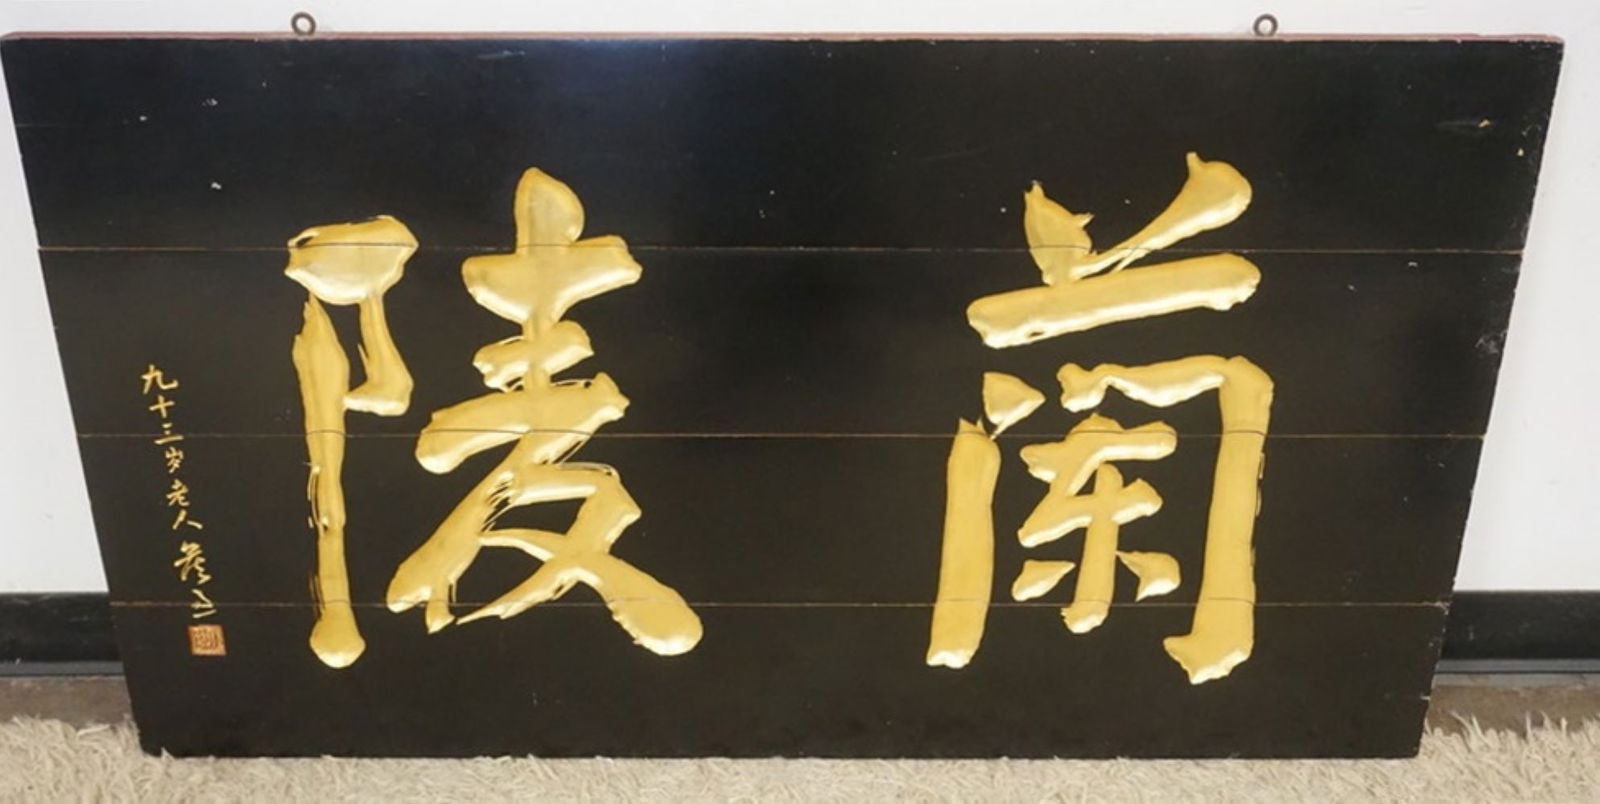 蘭陵
九十三岁老人